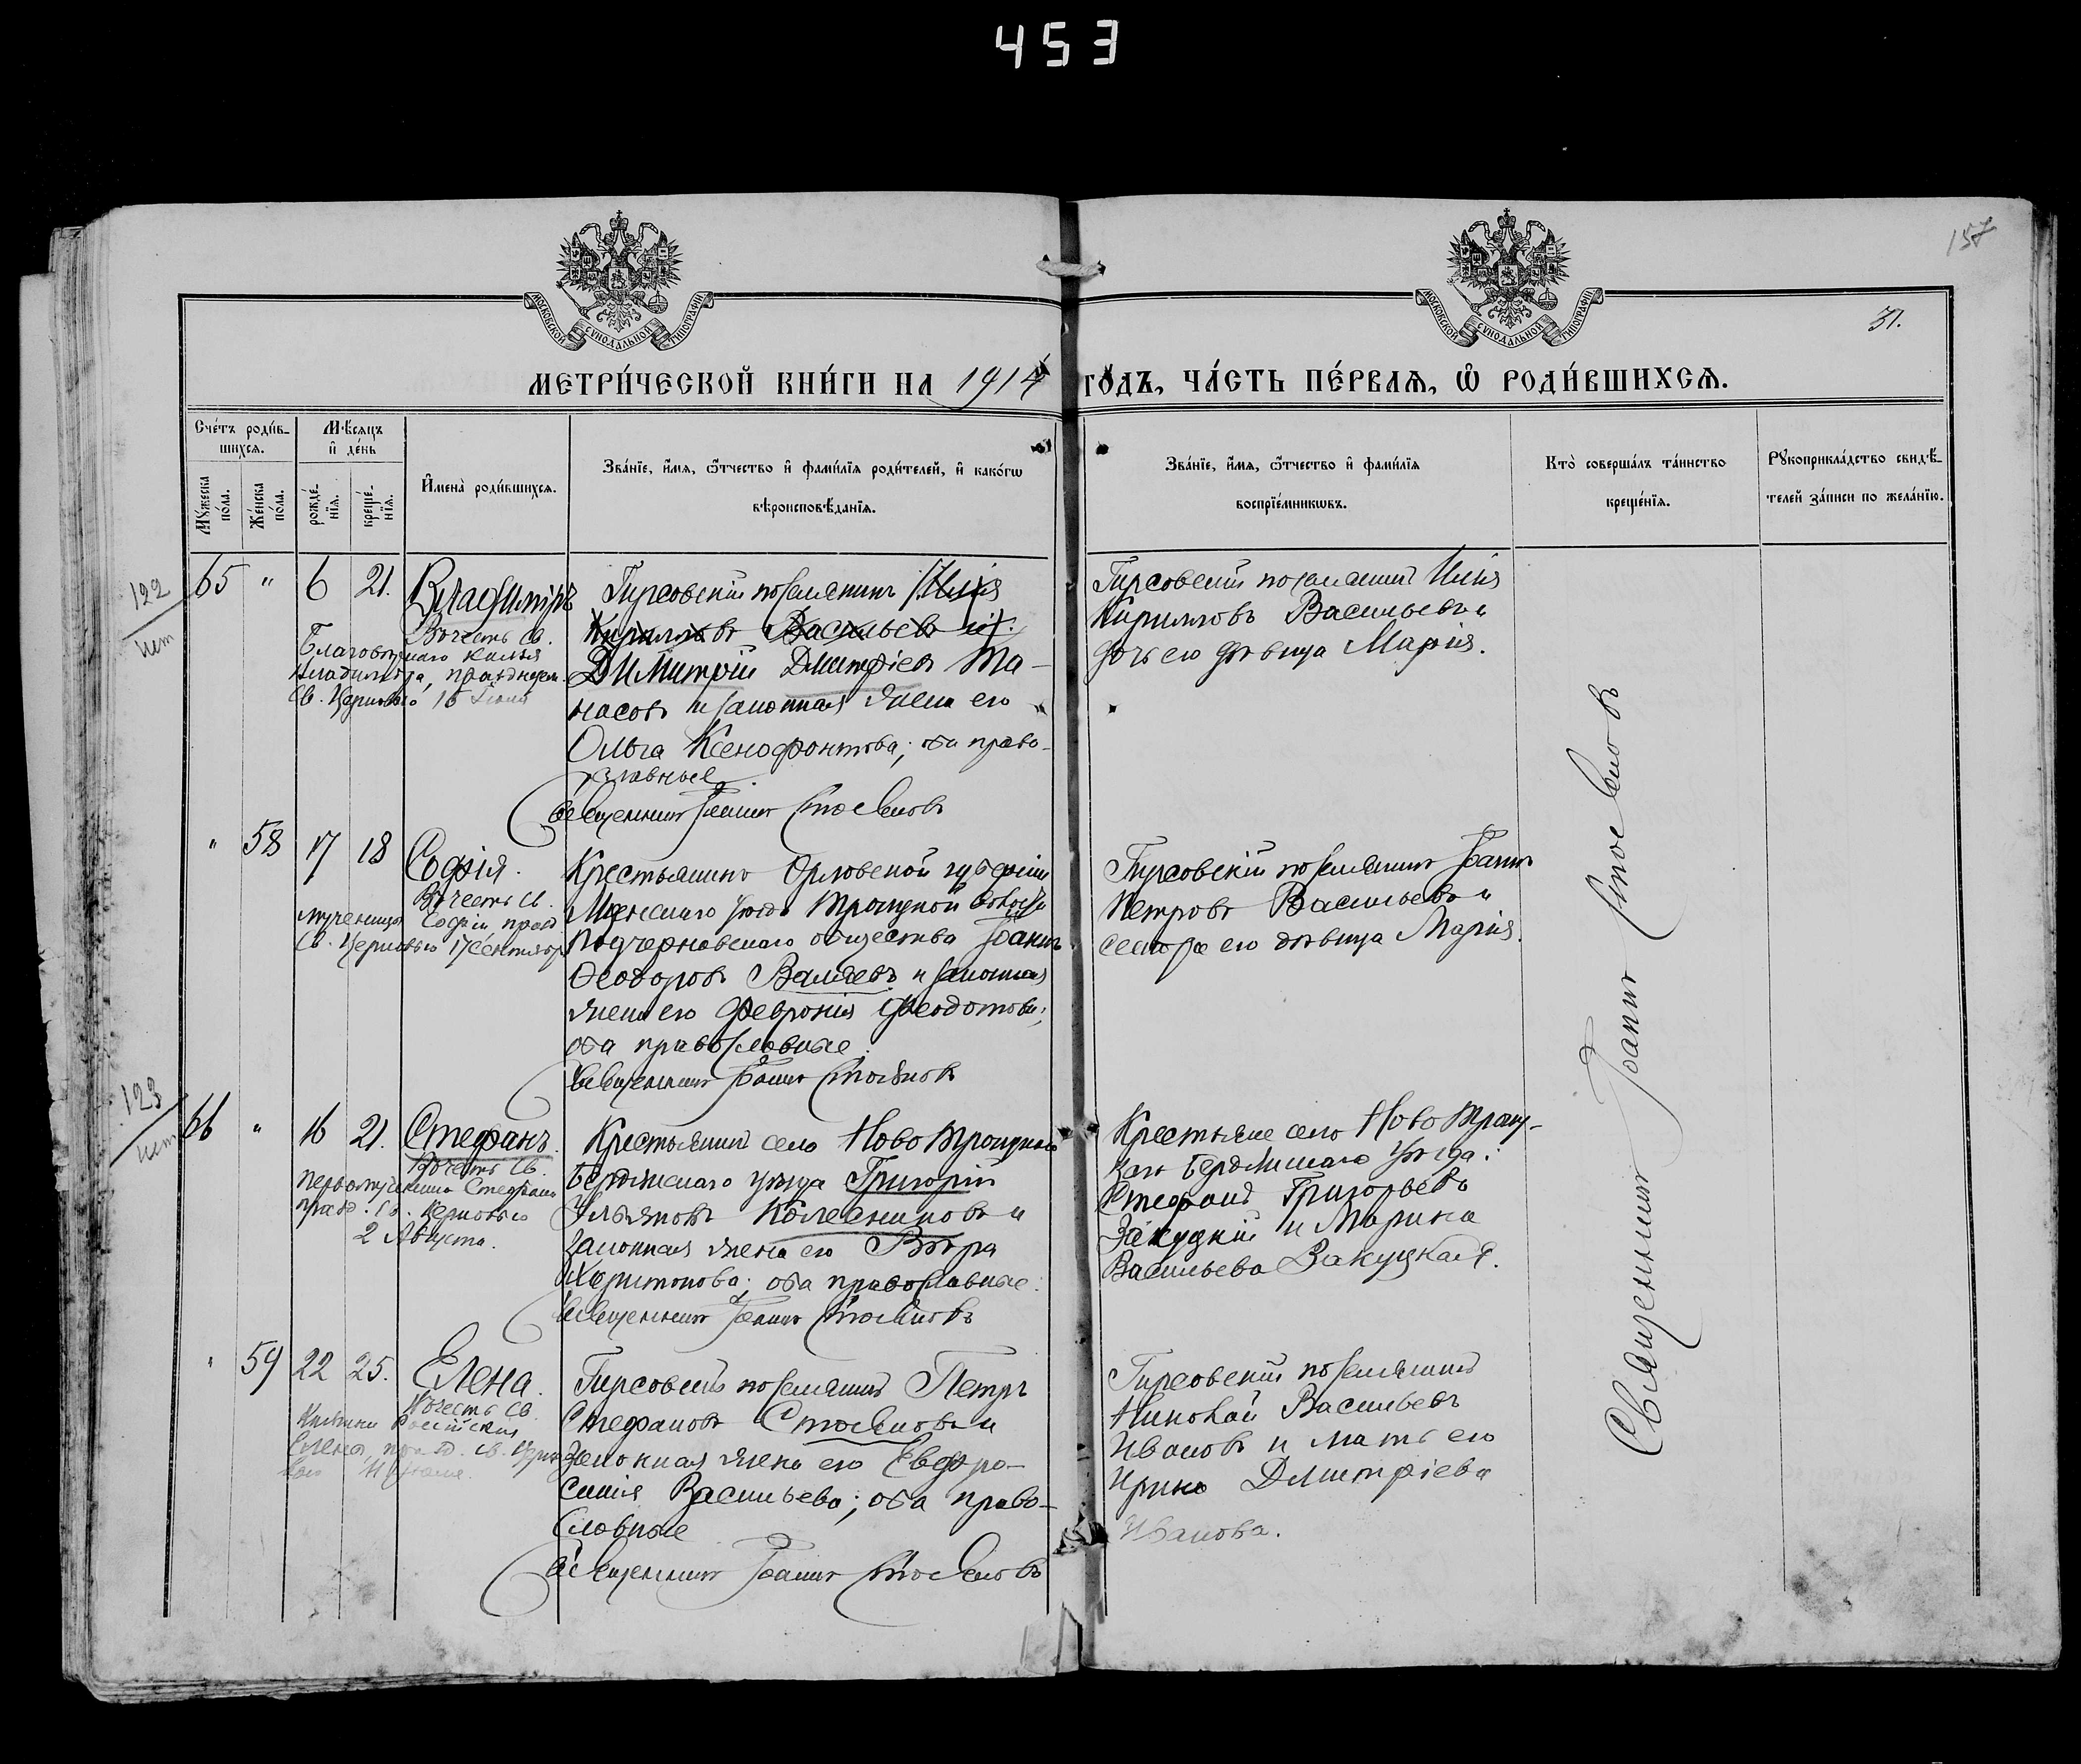 453
157
31.
МОСКОВСКОЙ СѴНОДАЛЬНОЙ ТИПОГРАФІИ
МОСКОВСКОЙ СѴНОДАЛЬНОЙ ТИПОГРАФІИ
МЕТРИ́ЧЕСКОЙ КНИ́ГИ НА 1914 ГО́ДЪ, ЧА́СТЬ ПЕ́РВАѦ, Ѡ҆ РОДИ́ВШИХСѦ.
Сче́тъ роди́в-
шихсѧ.
Мꙋ́жеска по́ла.
Же́нска по́ла.
Мѣ́сѧцъ и҆ де́нь
рожде́-
нїѧ.
креще́-
нїѧ.
И҆мена̀ роди́вшихсѧ.
Зва́нїе, и҆́мѧ, ѻ҆́тчество и҆ фамѝлїѧ роди́телей, и҆ како́гѡ
вѣроисповѣ́данїѧ.
Зва́нїе, и҆́мѧ, ѻ҆́тчество и҆ фамѝлїѧ
воспрїе́мникѡвъ.
Кто̀ соверша́лъ та́инство
креще́нїѧ.
Рꙋкоприкла́дство свидѣ́-
телей за́писи по жела́нїю.
122
65 " 6 21. Владиміръ
Въ честь св.
Благовѣрнаго Князя
Владиміра, праздндуем.
св. Церковью 15 Іюля
Гирсовскій поселянинъ Илія
Кирилловъ Васильевъ и
Димитрій Дмитріевъ Та-
насовъ и законная жена его
Ольга Ксенофонтова; оба право-
славные.
Священникъ Іоаннъ Стояновъ
Гирсовскій поселянинъ Илія
Кирилловъ Васильевъ и
дочь его дѣвица Марія.
" 58 17 18 Софія.
Въ честь св.
мученицы Софіи, празд
св. Церковью 17 Сентября
Крестьянинъ Орловской губерніи
уѣзда Троицкой волости
общества Іоаннъ
Ѳеодоровъ Валяевъ и законная
жена его Февронія Феодотова;
оба православные.
Священникъ Іоаннъ Стояновъ
Гирсовскій поселянинъ Іоаннъ
Петровъ Васильевъ и
сестра его дѣвица Марія.
123
66 " 16 21. Стефанъ.
Въ честь св.
Первомученика Стефана
празд. св. Церковью
2 Августа.
Крестьянинъ села Ново Троицкаго
Бердянскаго уѣзда Григорій
Ульяновъ Колесниковъ и
законная жена его Вѣра
Харитонова; оба православные.
Священникъ Іоаннъ Стояновъ
Крестьяне села Ново Троиц-
каго Бердянскаго уѣзда:
Стефанъ Григорьевъ
Закуцкій и Марина
Васильева Закуцкая.
" 59 22 25. Елена.
Въ честь св.
Княгини Россійскія
Елены, празд. св. Церко-
вью 11 Іюля.
Гирсовскій поселянинъ Петръ
Стефановъ Стояновъ и
законная жена его Евфро-
синія Васильева; оба право-
славные
Священникъ Іоаннъ Стояновъ
Гирсовскій поселянинъ
Николай Васильевъ
Ивановъ и мать его
Ирина Дмитріева
Иванова.
Священникъ Іоаннъ Стояновъ